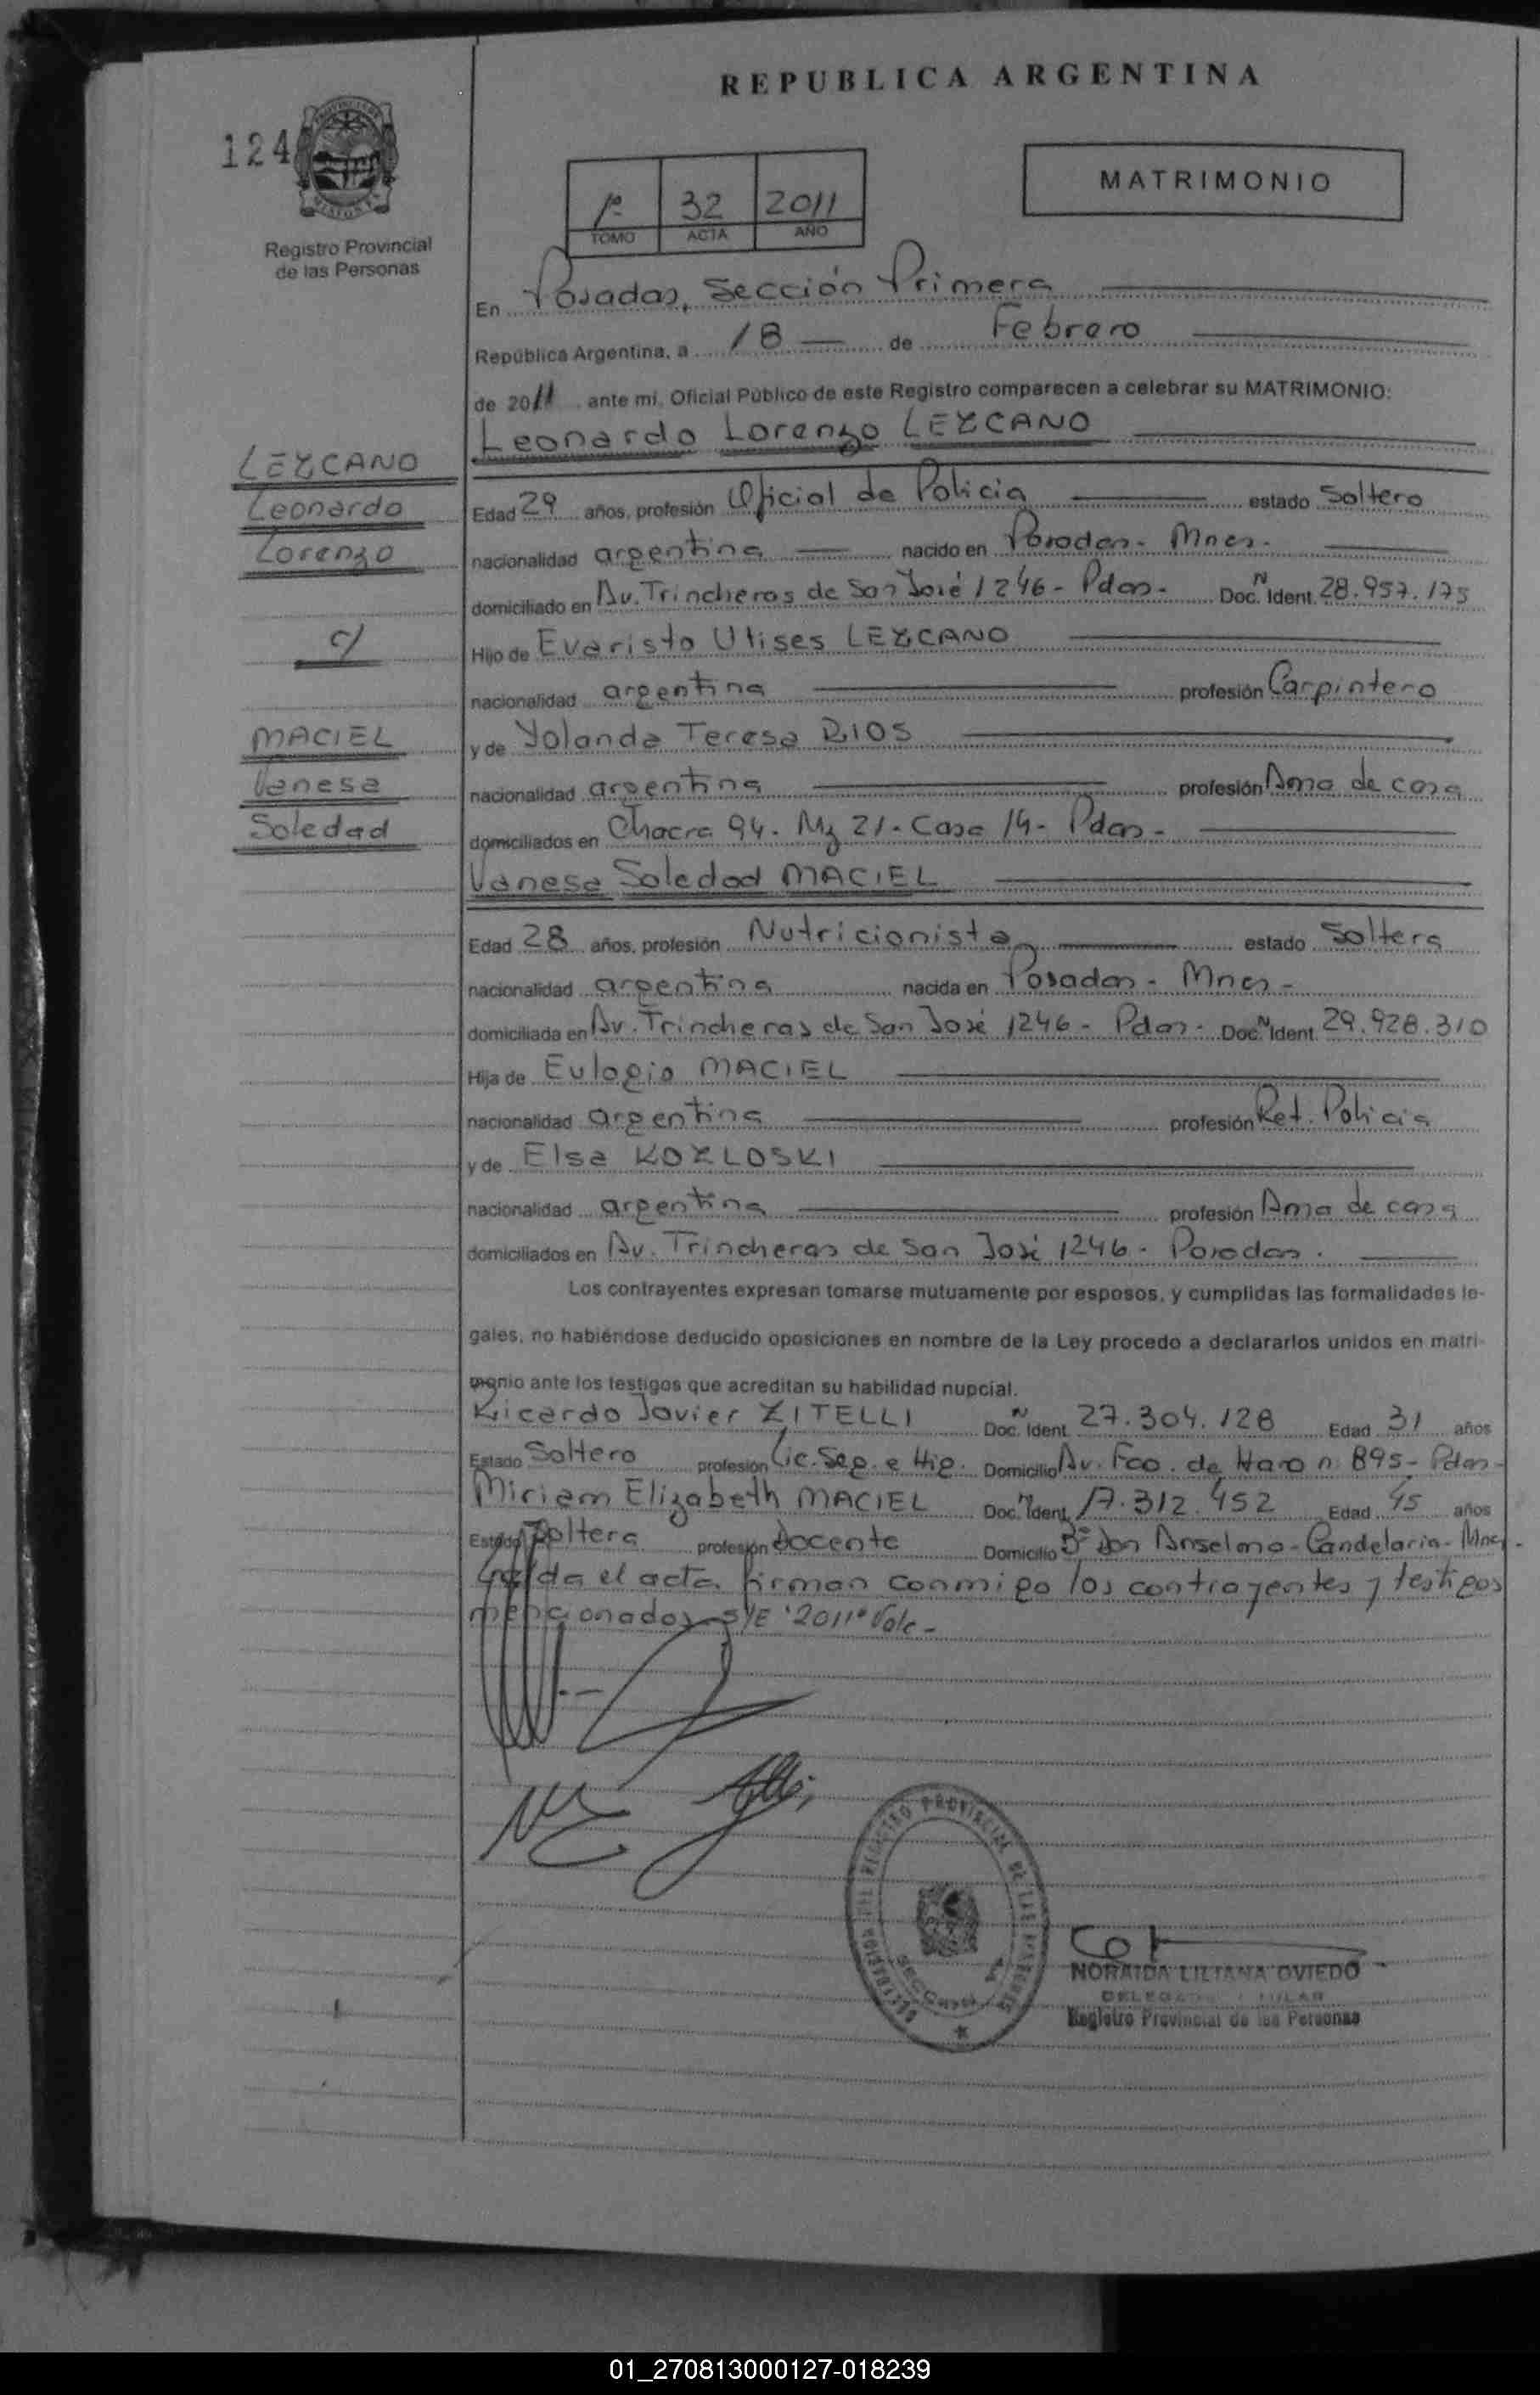 REPUBLICA ARGENTINA
124
Registro Provincial
de las Personas
MATRIMONIO
1º 32 2011
TOMO ACTA AÑO
En Posadas, Sección Primera
República Argentina, a 18 de Febrero
de 2011, ante mí, Oficial Público de este Registro comparecen a celebrar su MATRIMONIO:
Leonardo Lorenzo LEZCANO
LEZCANO
Leonardo
Lorenzo
c/
MACIEL
Vanesa
Soledad
Edad 29 años, profesión Oficial de Policia estado Soltero
nacionalidad argentina nacido en Posadas - Mnes -
domiciliado en Av. Trincheras de San José 1246 - Pdas - Doc. N Ident. 28.957.175
Hijo de Evaristo Ulises LEZCANO
nacionalidad argentina profesión Carpintero
y de Yolanda Teresa RIOS
nacionalidad argentina profesión Ama de casa
domiciliados en Chacra 94 - Mz 21 - Casa 14 - Pdas -
Vanesa Soledad MACIEL
Edad 28 años, profesión Nutricionista estado Soltera
nacionalidad argentina nacida en Posadas - Mnes -
domiciliada en Av. Trincheras de San José 1246 - Pdas - Doc. N Ident. 29.928.310
Hija de Eulogio MACIEL
nacionalidad argentina profesión Ret. Policia
y de Elsa KOZLOSKI
nacionalidad argentina profesión Ama de casa
domiciliados en Av. Trincheras de San José 1246 - Posadas.
Los contrayentes expresan tomarse mutuamente por esposos, y cumplidas las formalidades le-
gales, no habiéndose deducido oposiciones en nombre de la Ley procedo a declararlos unidos en matri-
monio ante los testigos que acreditan su habilidad nupcial.
Ricardo Javier ZITELLI Doc. N Ident. 27.304.128 Edad 31 años
Estado Soltero profesión Lic. Seg. e Hig. Domicilio Av. Fco. de Haro n 895 - Pdas -
Miriam Elizabeth MACIEL Doc. N Ident. 17.312.452 Edad 45 años
Estado Soltera profesión Docente Domicilio Bº Don Anselmo - Candelaria - Mnes -
Leída el acta firman conmigo los contrayentes y testigos
mencionados - S/E "2011" Vale -
REGISTRO PROVINCIAL DE LAS PERSONAS
NORAIDA LILIANA OVIEDO
Registro Provincial de las Personas
01_270813000127-018239